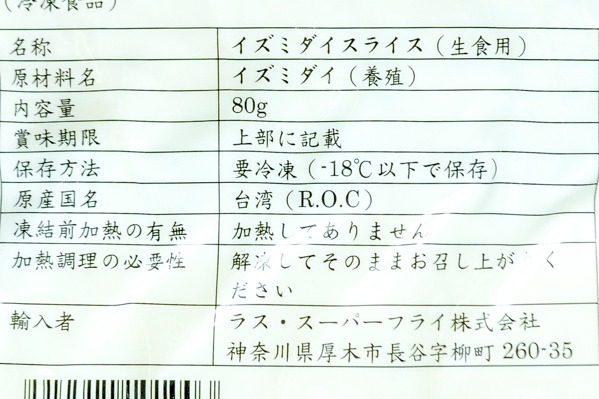 (冷凍食品)
名称 イズミダイスライス(生食用)
原材料名 イズミダイ(養殖)
内容量 80g
賞味期限 上部に記載
保存方法 要冷凍(-18℃以下で保存)
原産国名 台湾(R.O.C)
凍結前加熱の有無 加熱してありません
加熱調理の必要性 解凍してそのままお召し上がりく
ださい
輸入者 ラス・スーパーフライ株式会社
神奈川県厚木市長谷字柳町260-35